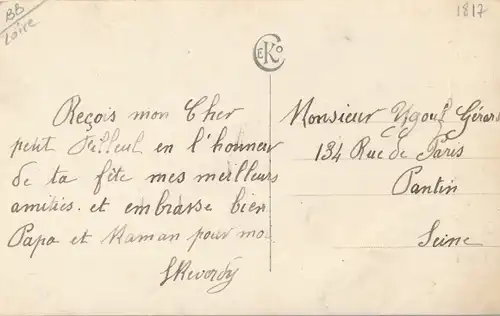 BB
Loire
1817
CEKO
Reçois mon Cher
petit Filleul en l'honneur
de ta fête mes meilleurs
amitiés. et embrasse bien
Papa et Maman pour moi
Monsieur Ygouf Gérard
134 Rue de Paris
Pantin
Seine